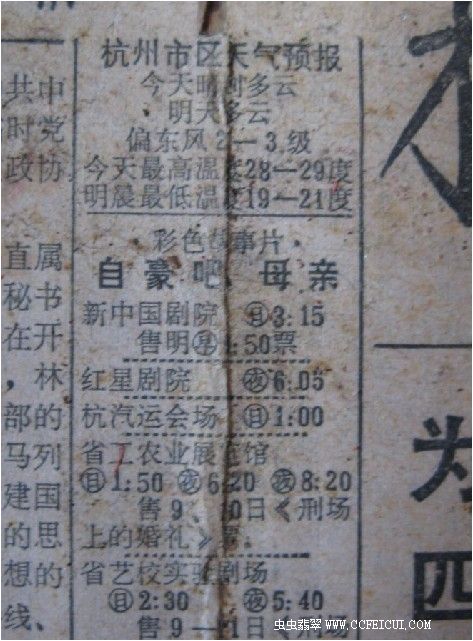 杭州市区天气预报
今天晴到多云
明天多云
偏东风2—3级
今天最高温度28—29度
明晨最低温度19—21度
彩色故事片
自豪吧，母亲
新中国剧院 日3:15
售明早 :50票
红星剧院 夜6:05
杭汽运会场 日1:00
省工农业展览馆
日1:50 夜6:20 夜8:20
售9 0日《刑场
上的婚礼》票
省艺校实验剧场
日2:30 夜5:40
售9 21日 场
共中
时党
政协
直属
秘书
在开
，林
部的
马列
建国
的思
想的
线、
为
四
虫虫翡翠.WWW.CCFEICUI.COM